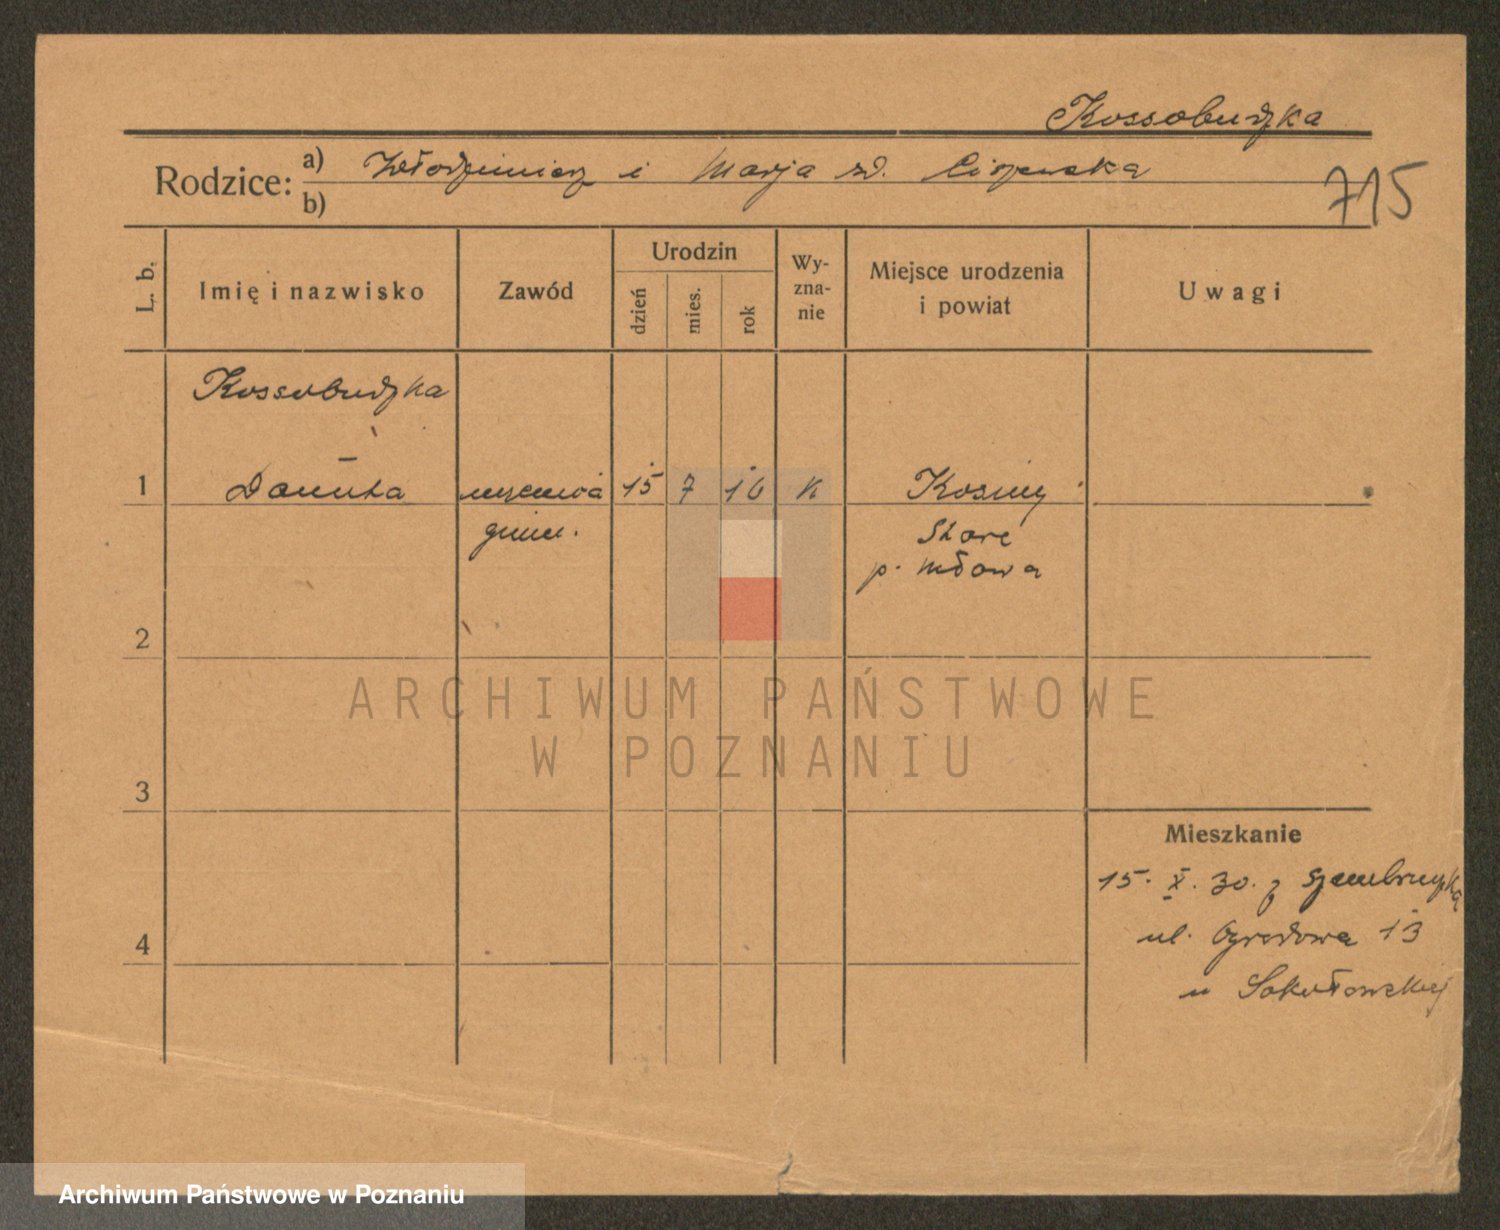 Kossobudzka
Rodzice: a) Włodzimierz i Marja zd. Ciszewska
b)
715
L. b.
Imię i nazwisko
Zawód
Urodzin
dzień
mies.
rok
Wy-
zna-
nie
Miejsce urodzenia
i powiat
Uwagi
Kossobudzka
1 Danuta uczennica 15 7 10 K Kosiny
gimn. Stare
p. Mława
2
3
4
Mieszkanie
15. X. 30. z
ul. Ogrodowa 13
u Sokołowskiej
ARCHIWUM PAŃSTWOWE
W POZNANIU
Archiwum Państwowe w Poznaniu